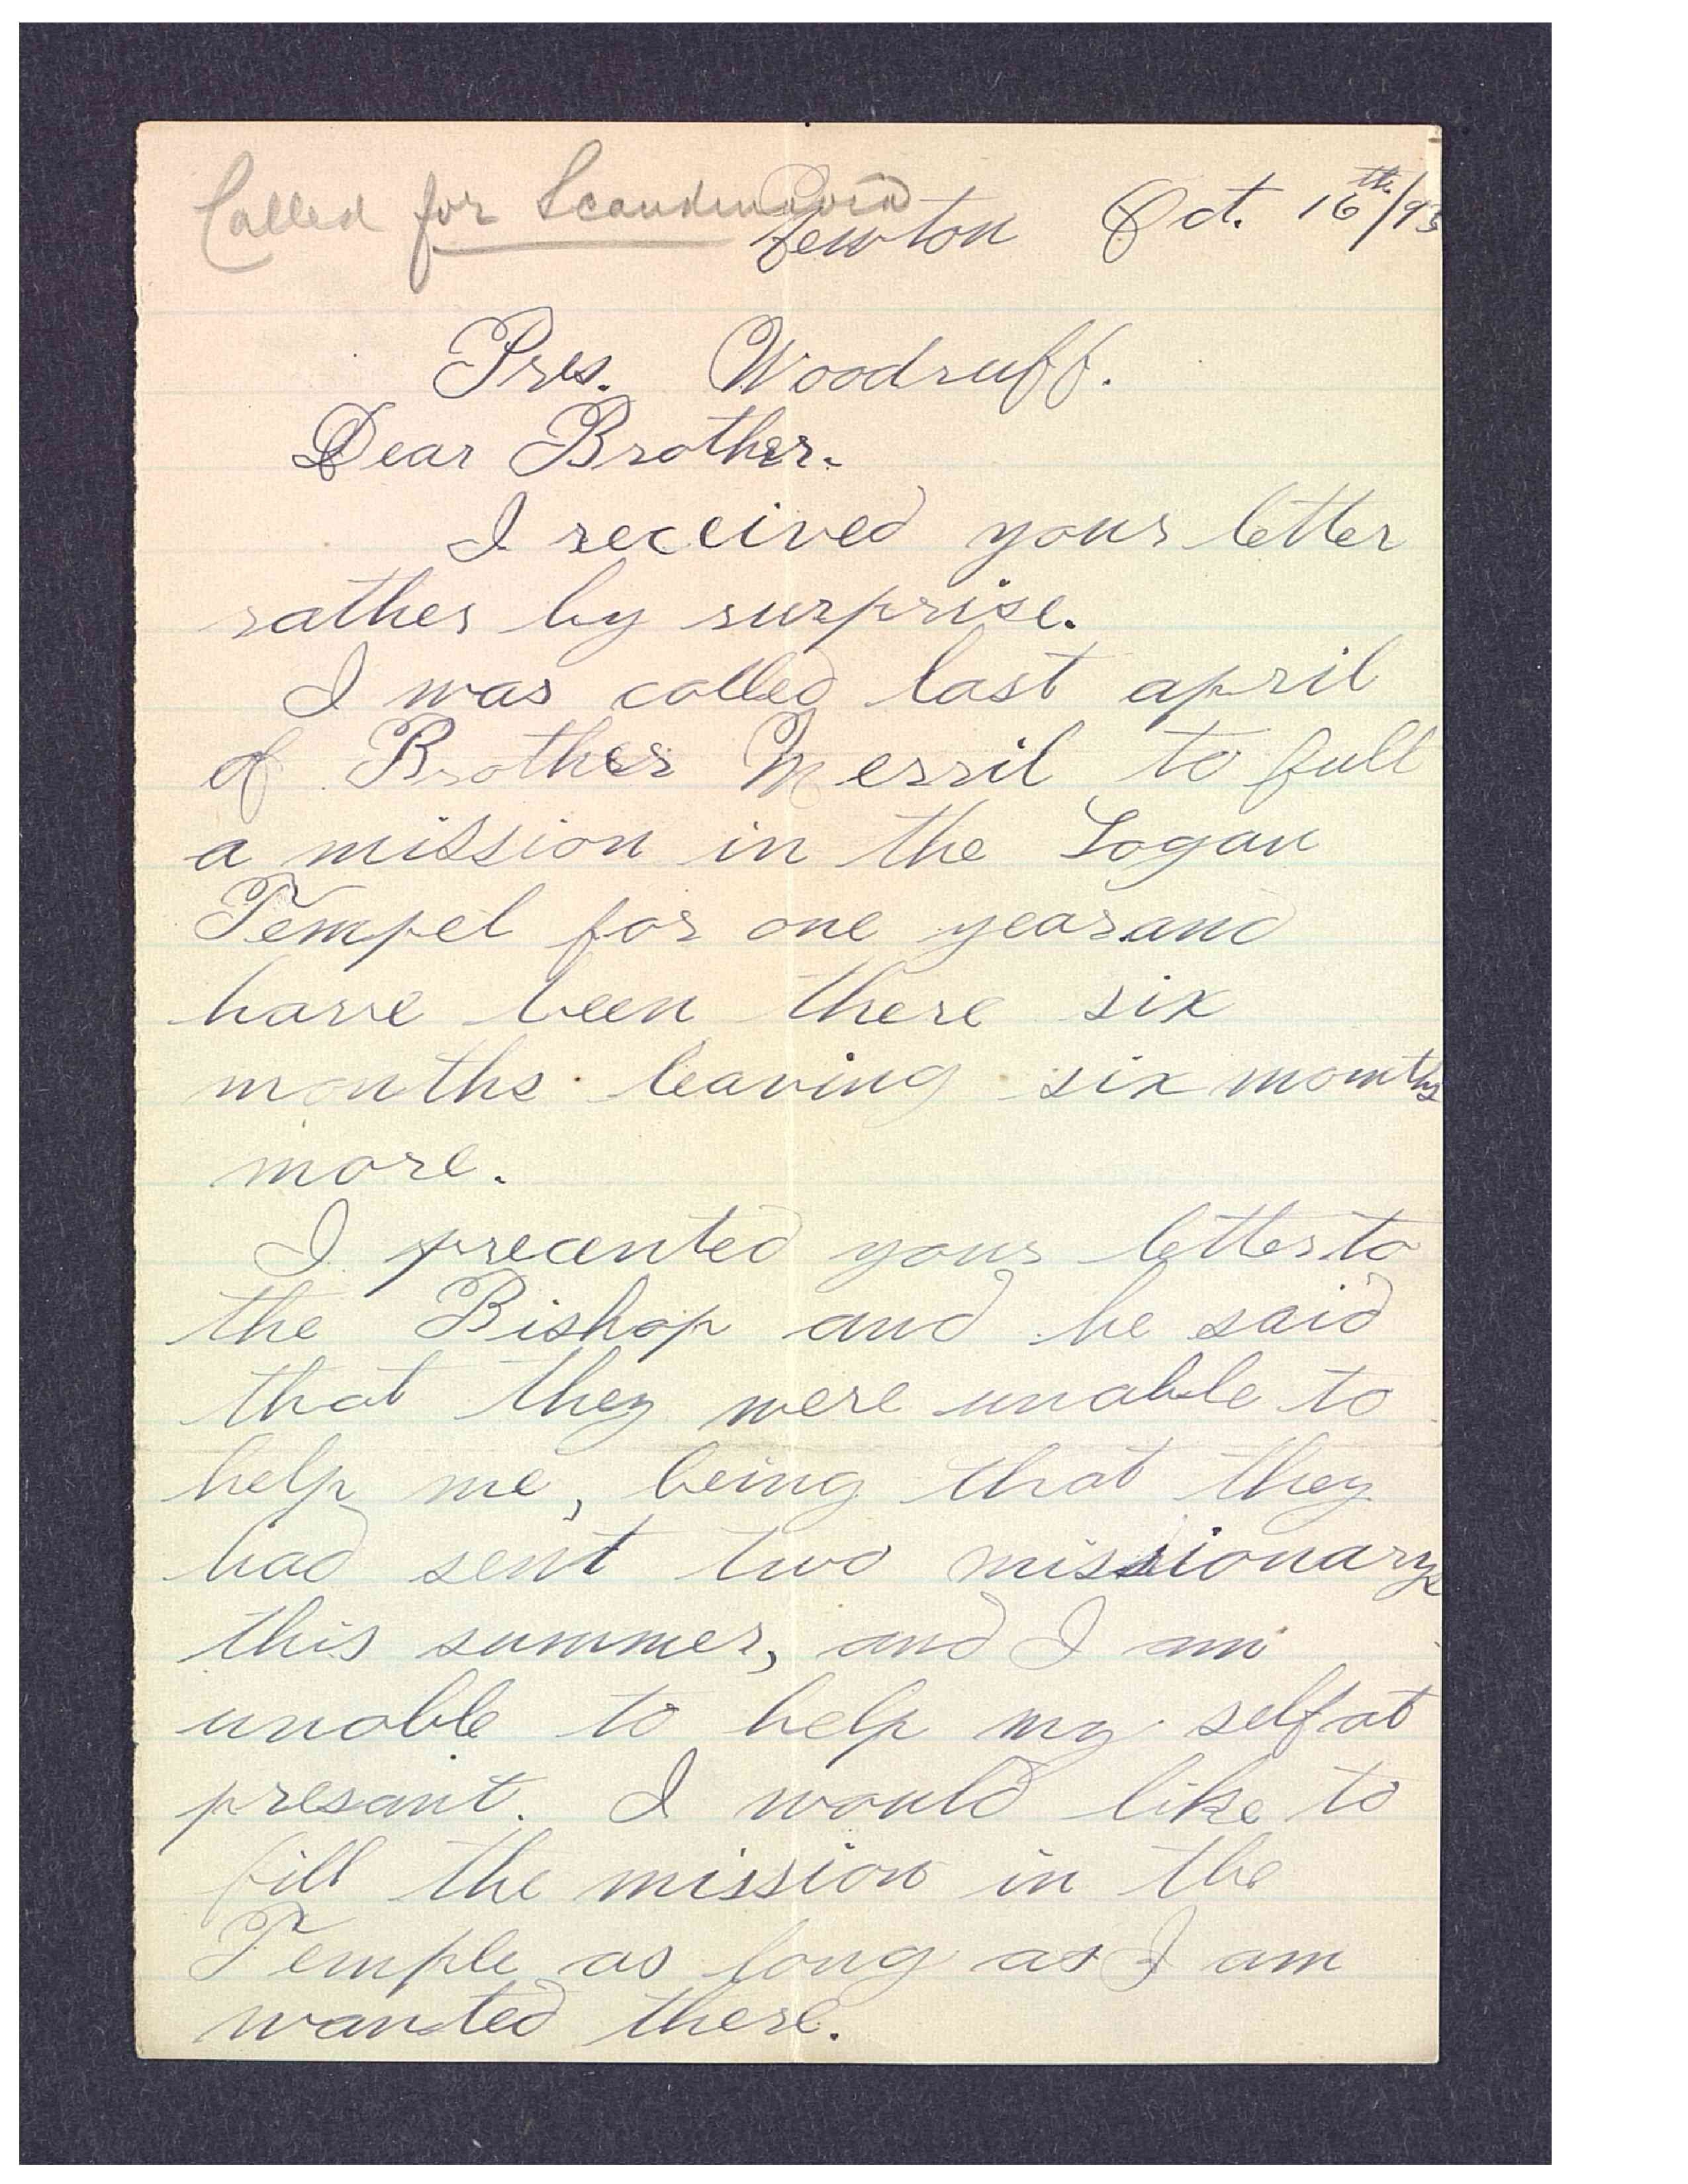 Called for Scandinavia
Newton Oct. 16th/93
Pres. Woodruff.
Dear Brother.
I received your letter
rather by surprise.
I was called last april
of Brother Merril to full
a mission in the Logan
Tempel for one year and
have been there six
months leaving six months
more.
I precented your letter to
the Bishop and he said
that they were unable to
help me, being that they
had sent two missionarys
this summer, and I am
unable to help my self at
presant. I would like to
fill the mission in the
Temple as long as I am
wanted there.